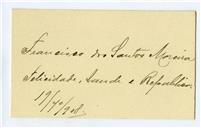 Francisco dos Santos Moreira
Felicidade, Saude e Republica
19/10/908